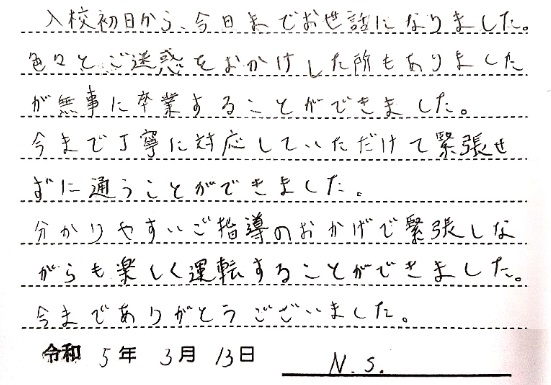 入校初日から、今日までお世話になりました。
色々とご迷惑をおかけした所もありました
が無事に卒業することができました。
今まで丁寧に対応していただけて緊張せ
ずに通うことができました。
分かりやすいご指導のおかげで緊張しな
がらも楽しく運転することができました。
今までありがとうございました。
令和 5年 3月 13日 N.S.